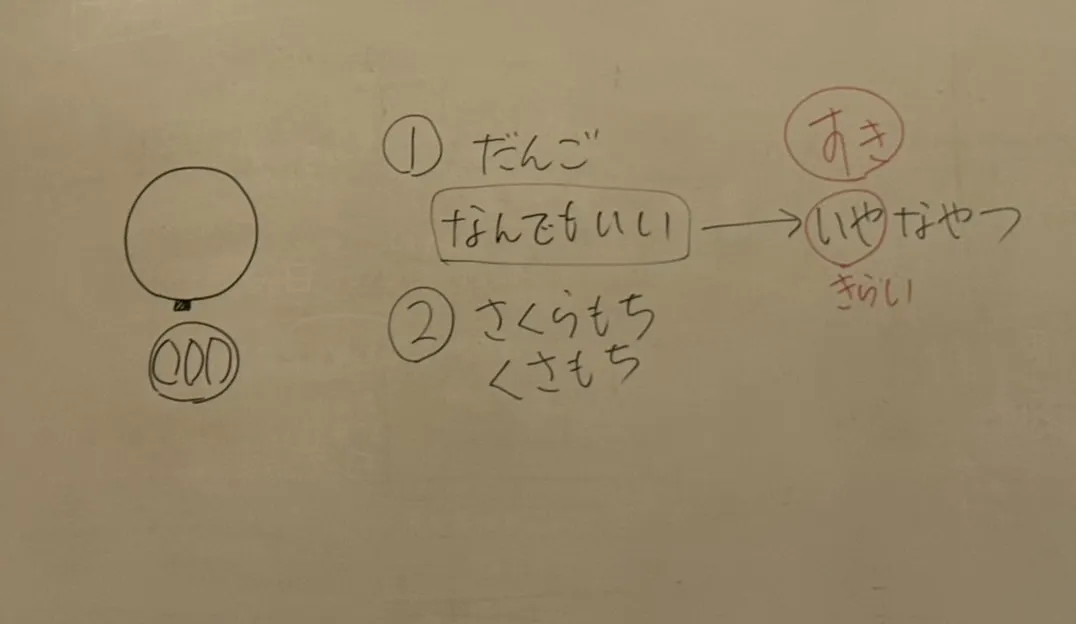 ① だんご
なんでもいい → いやなやつ
すき
きらい
② さくらもち
くさもち